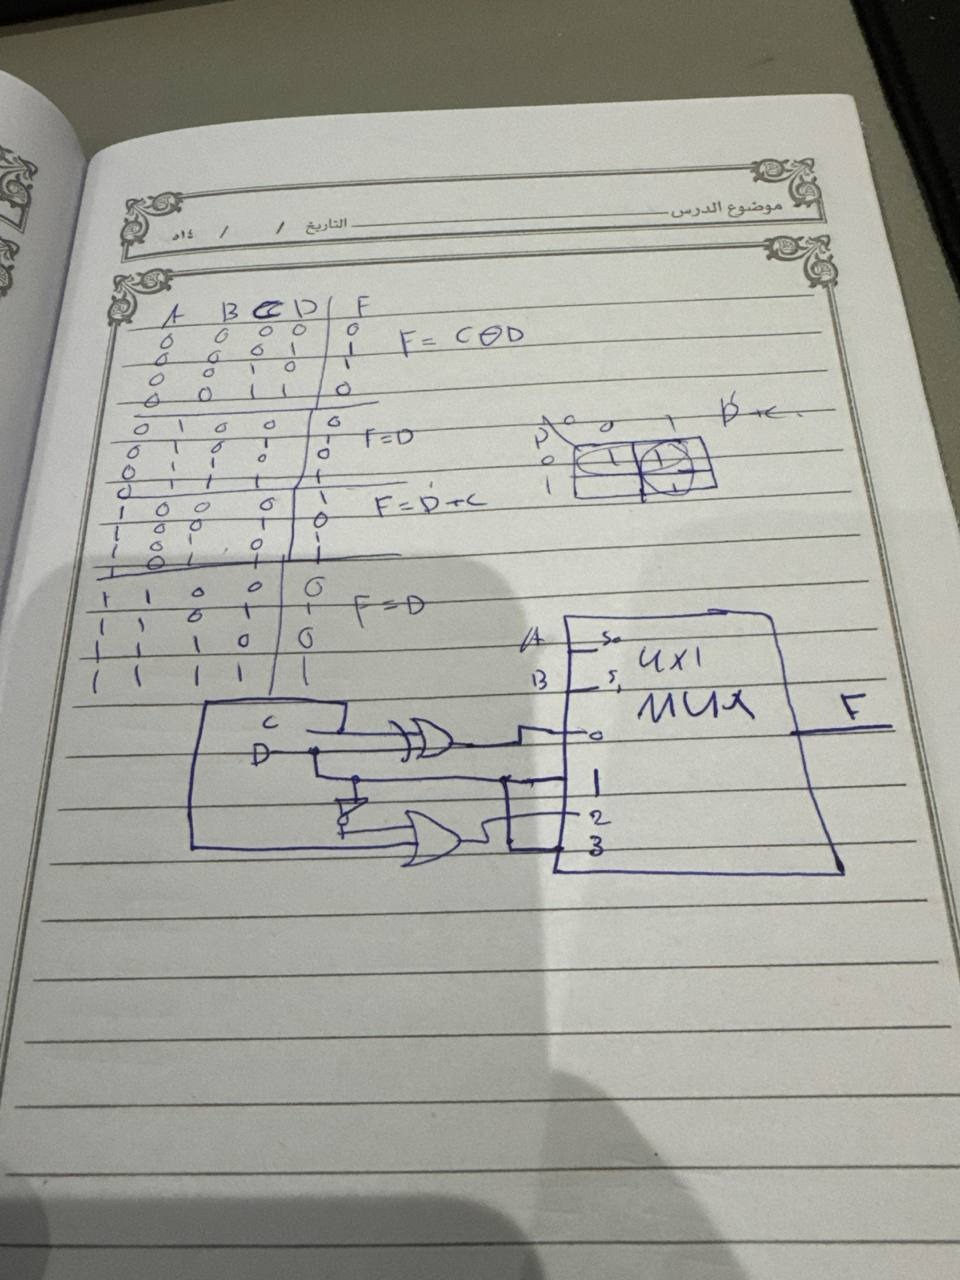 موضوع الدرس
التاريخ / / ١٤هـ
A B C D F
0 0 0 0 0
0 0 0 1 1
0 0 1 0 1
0 0 1 1 0
F = C ⊕ D
0 1 0 0 0
0 1 0 1 1
0 1 1 0 0
0 1 1 1 1
F = D
1 0 0 0 1
1 0 0 1 0
1 0 1 0 1
1 0 1 1 1
F = D' + C
0 1
D' + C.
0 1 1
1 1
1 1 0 0 0
1 1 0 1 1
1 1 1 0 0
1 1 1 1 1
F = D
A S0
B S1
4x1
MUX
F
C
D
0
1
2
3